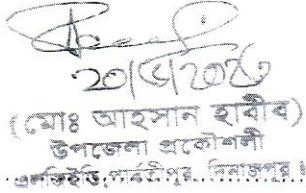 20/5/2026
(মোঃ আহসান হাবীব)
উপজেলা প্রকৌশলী
এলজিইডি, পার্বতীপুর, দিনাজপুর।